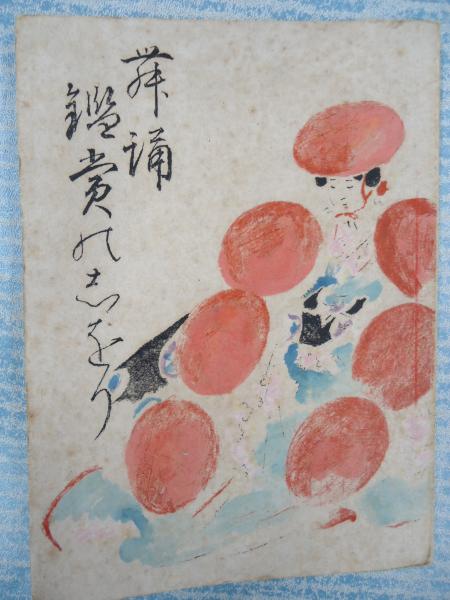 舞踊
鑑賞のしをり